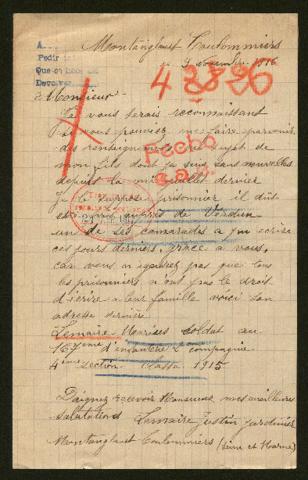 Montanglaust Coulommiers
9 novembre 1916
A
Pedir
Que
Devolver
43896
Monsieur
Je vous serais reconnaissant
si vous pouviez me faire parvenir
des renseignements au sujet de
mon fils dont je suis sans nouvelles
depuis la mi juillet dernier
Je le suppose prisonnier il dût
être pris auprès de Verdun
un de ses camarades a pu ecrire
ces jours derniers grace a vous,
car vous n'ignorez pas que tous
les prisonniers n'ont pas le droit
d'écrire a leur famille voici son
adresse dernière
Lemaire Maurice soldat au
167 ième d'infanterie 2 compagnie
4 ième section classe 1915
Daignez recevoir Monsieur mes meilleures
salutations Lemaire Justin jardinier
Montanglaust Coulommiers (Seine et Marne)